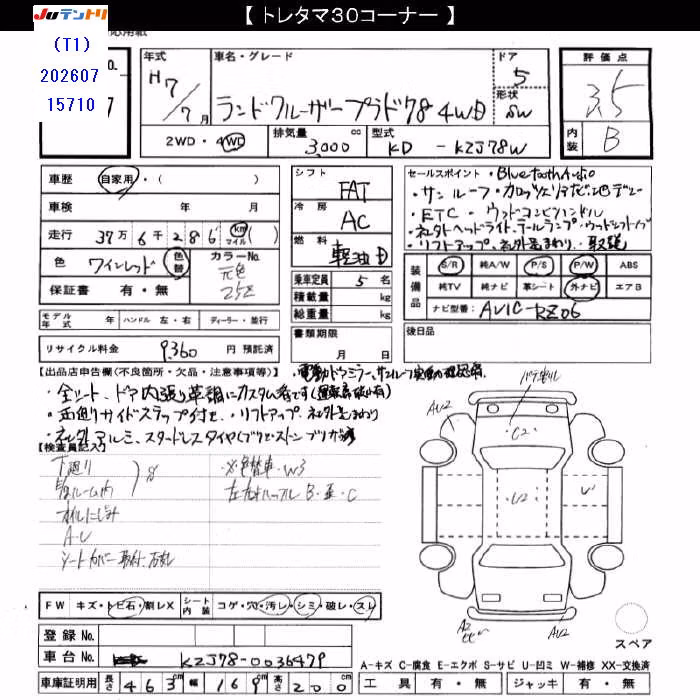 【 トレタマ30コーナー 】
JUテントリ
(T1)
202607
15710
年式
H7/7月
車名・グレード
ランドクルーザープラド78 4WD
ドア
5
形状
SW
評価点
3.5
内装
B
2WD・4WD
排気量
3,000 cc
型式
KD - KZJ78W
車歴
自家用・( )
車検 年 月
走行 37万 6千 286 km マイル ( )
色
ワインレッド
色替
カラーNo.
元色
25Z
保証書 有・無
モデル年式 年
ハンドル 左・右
ディーラー・並行
リサイクル料金 9,360 円 預託済
シフト
FAT
冷房
AC
燃料
軽油 D
乗車定員 5 名
積載量 kg
総重量 kg
書類期限
月 日
セールスポイント
・Bluetooth Audio
・サンルーフ・カロッツェリアナビ地デジ
・ETC・ウッドコンビハンドル
・社外ヘッドライト、テールランプ・ウッドシフトノブ
・リフトアップ、社外足まわり・取説
装備品
S/R
純A/W
P/S
P/W
ABS
純TV
純ナビ
革シート
外ナビ
エアB
ナビ型番 AVIC-RZ06
後日品
【出品店申告欄(不良箇所・欠品・注意事項等)】
・電動ドアミラー、サンルーフ
・全シート、ドア内張り革調にカスタム
・両側サイドステップ付き、・リフトアップ 社外足まわり
・社外アルミ、スタッドレスタイヤ(ブリヂストン ブリザック
【検査員記入】
下廻り
ルーム内
サ
オイルにじみ
A・U
シートカバー取付
※色替車・W3
B・亜・C
パテ
AU2
C2
U2
U
A2
AU2
FW キズ・トビ石・割レX
シート内装 コゲ・穴・汚レ・シミ・破レ・スレ
登録No.
車台No. KZJ78-0036479
車庫証明用 長さ 463 cm 幅 169 cm 高さ 200 cm
スペア
A-キズ C-腐食 E-エクボ S-サビ U-凹ミ W-補修 XX-交換済
工具 有・無
ジャッキ 有・無